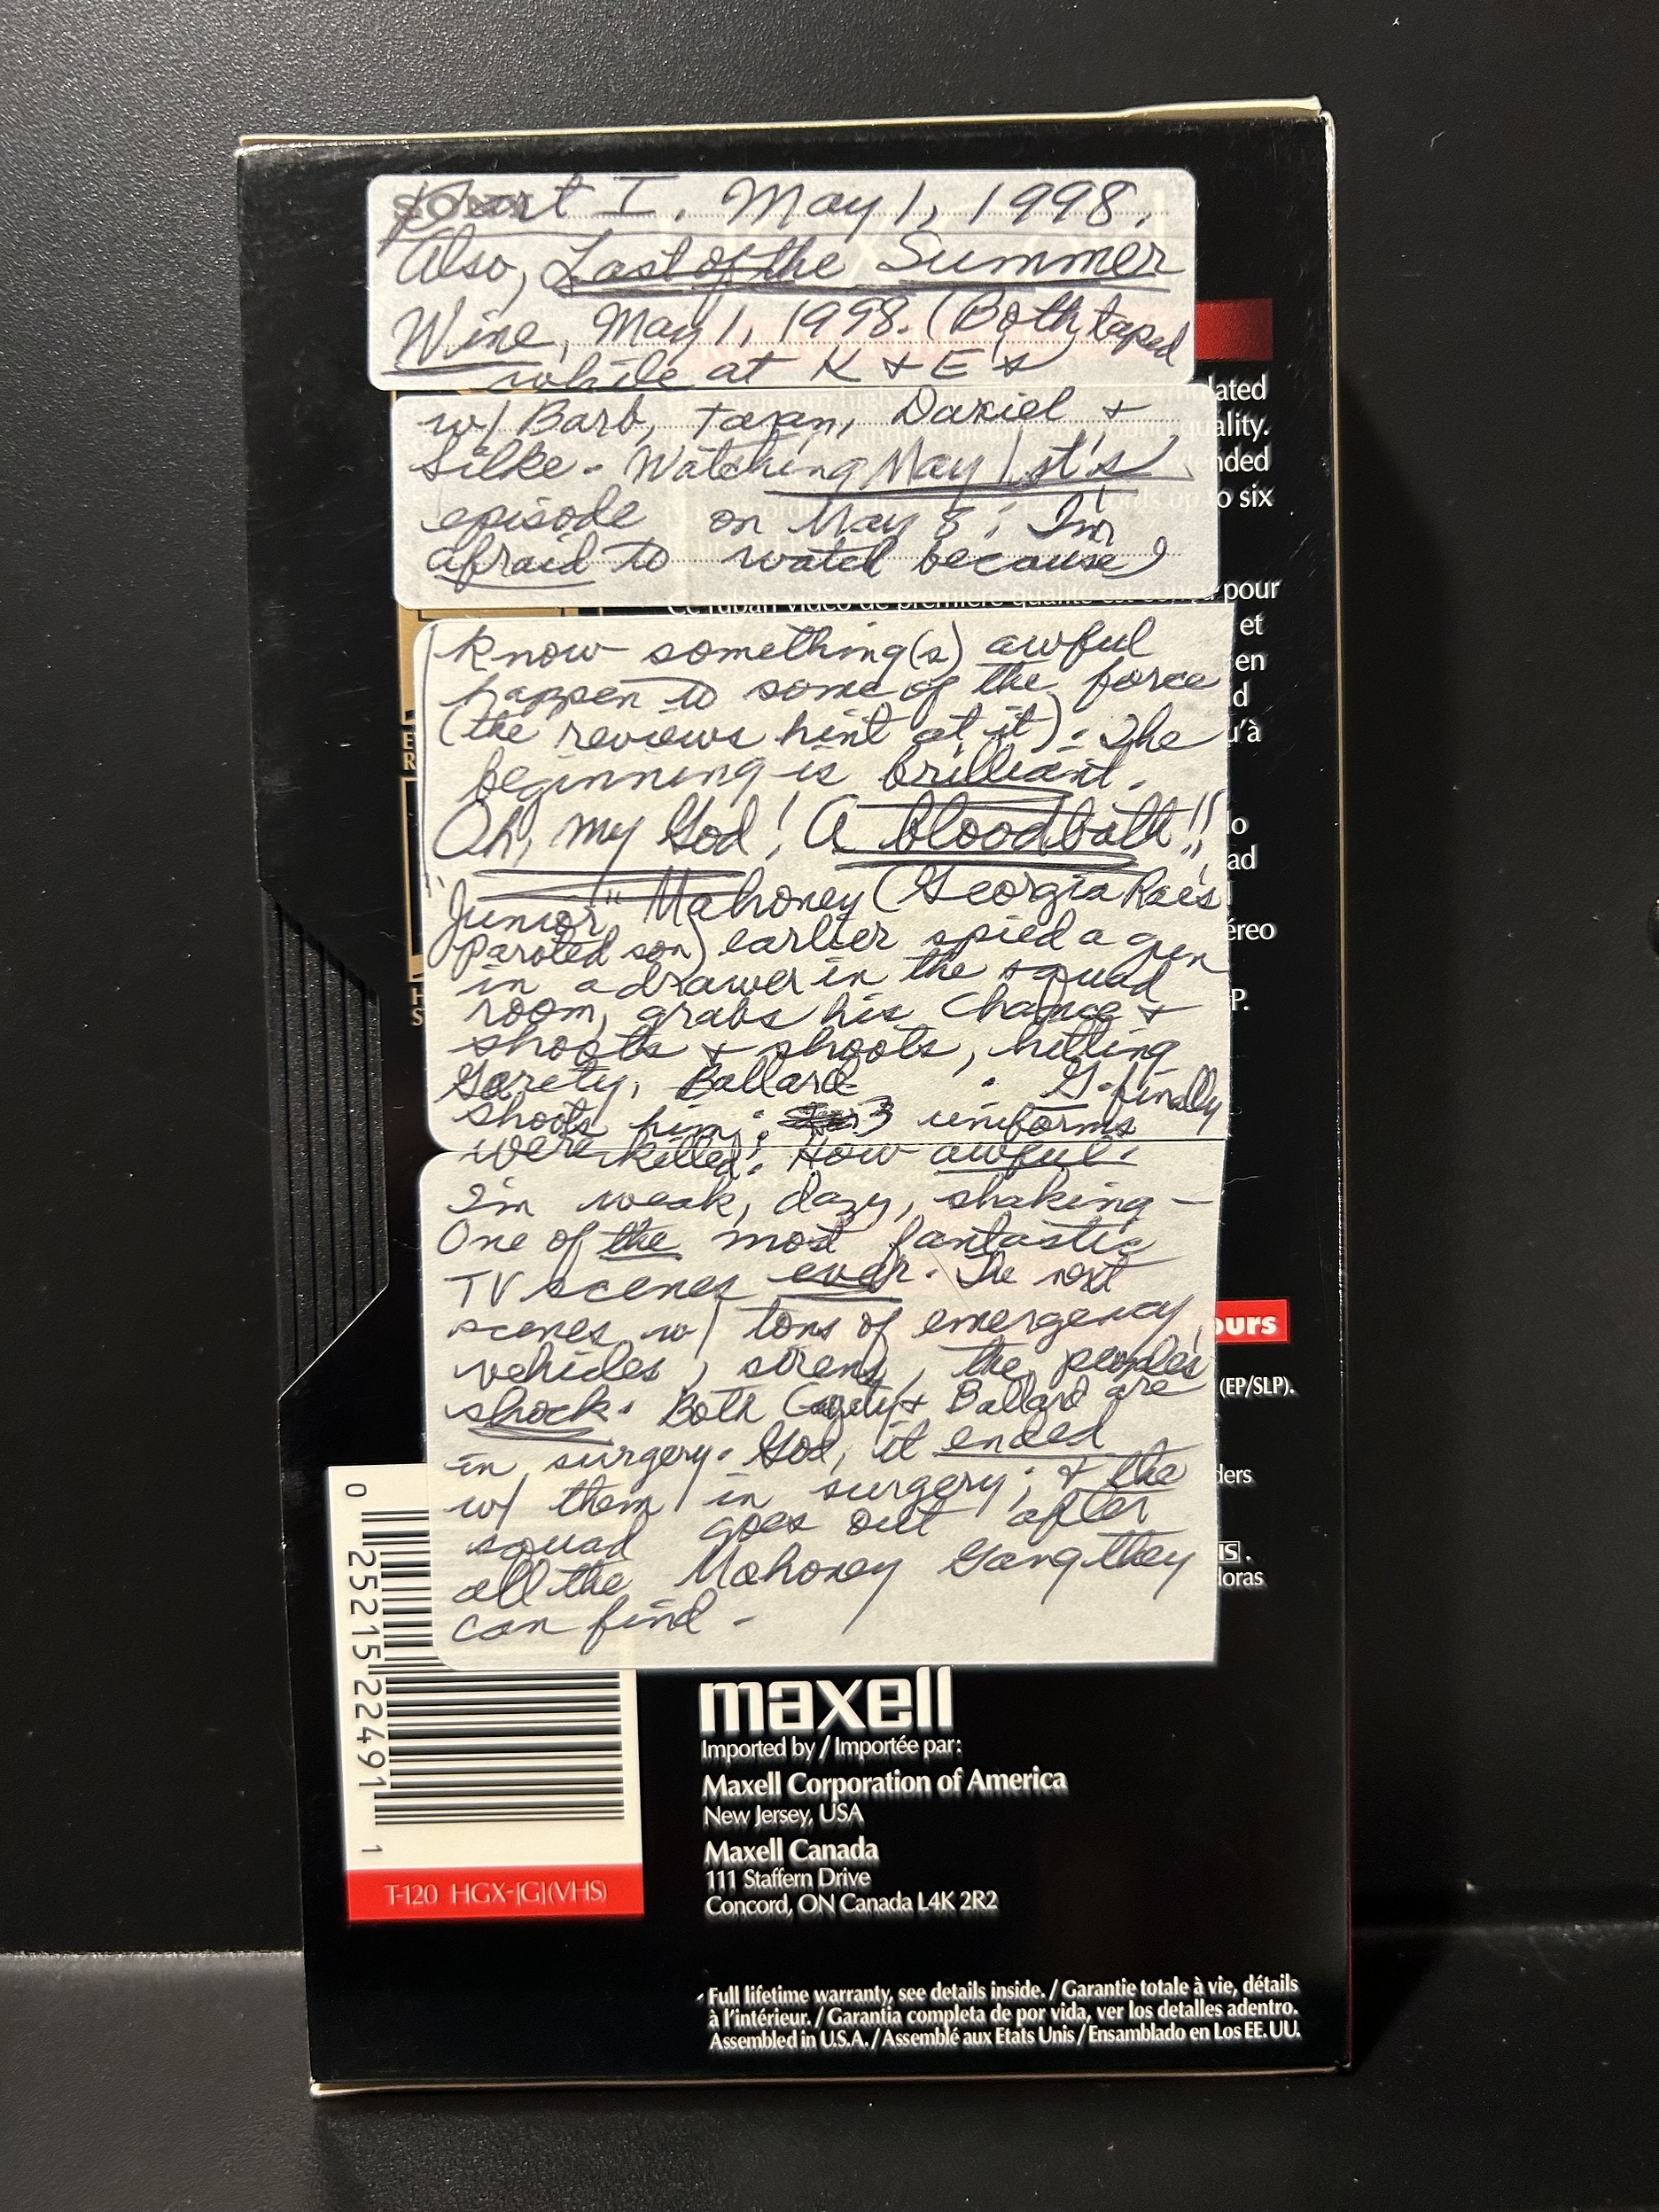 part I. May 1, 1998.
Also, Last of the Summer
Wine, May 1, 1998. (Both taped
while at K + E's
w/ Barb, Taran, Daniel +
Silke. Watching May 1st's
episode on May 8; I'm
afraid to watch because I
know something(s) awful
happen to some of the force
(the reviews hint at it). The
beginning is brilliant.
Oh, my God! A bloodbath!!
"Junior" Mahoney (Georgia Rae's
paroled son) earlier spied a gun
in a drawer in the squad
room, grabs his chance +
shoots + shoots, hitting
Garety, Ballard. G. finally
shoots him; 3 uniforms
were killed! How awful!
I'm weak, dazy, shaking -
One of the most fantastic
TV scenes ever. The next
scenes w/ tons of emergency
vehicles, sirens, the peoples'
shock. Both Garety + Ballard are
in surgery. God, it ended
w/ them in surgery; + the
squad goes out after
all the Mahoney Gang they
can find -
lated
ality.
nded
o six
Ce ruban vidéo de première qualité est conçu pour
et
en
d
u'à
E
R
o
ad
éreo
H
S
P.
ours
(EP/SLP).
ders
IS.
loras
0 25215 22491 1
T-120 HGX-[G](VHS)
maxell
Imported by / Importée par:
Maxell Corporation of America
New Jersey, USA
Maxell Canada
111 Staffern Drive
Concord, ON Canada L4K 2R2
Full lifetime warranty, see details inside. / Garantie totale à vie, détails
à l'intérieur. / Garantía completa de por vida, ver los detalles adentro.
Assembled in U.S.A. / Assemblé aux Etats Unis / Ensamblado en Los EE. UU.